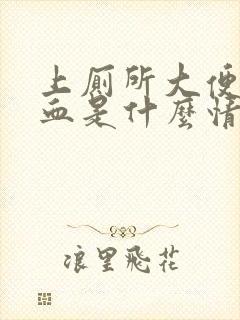 上厕所大便
血是什麼情
浪里飛花